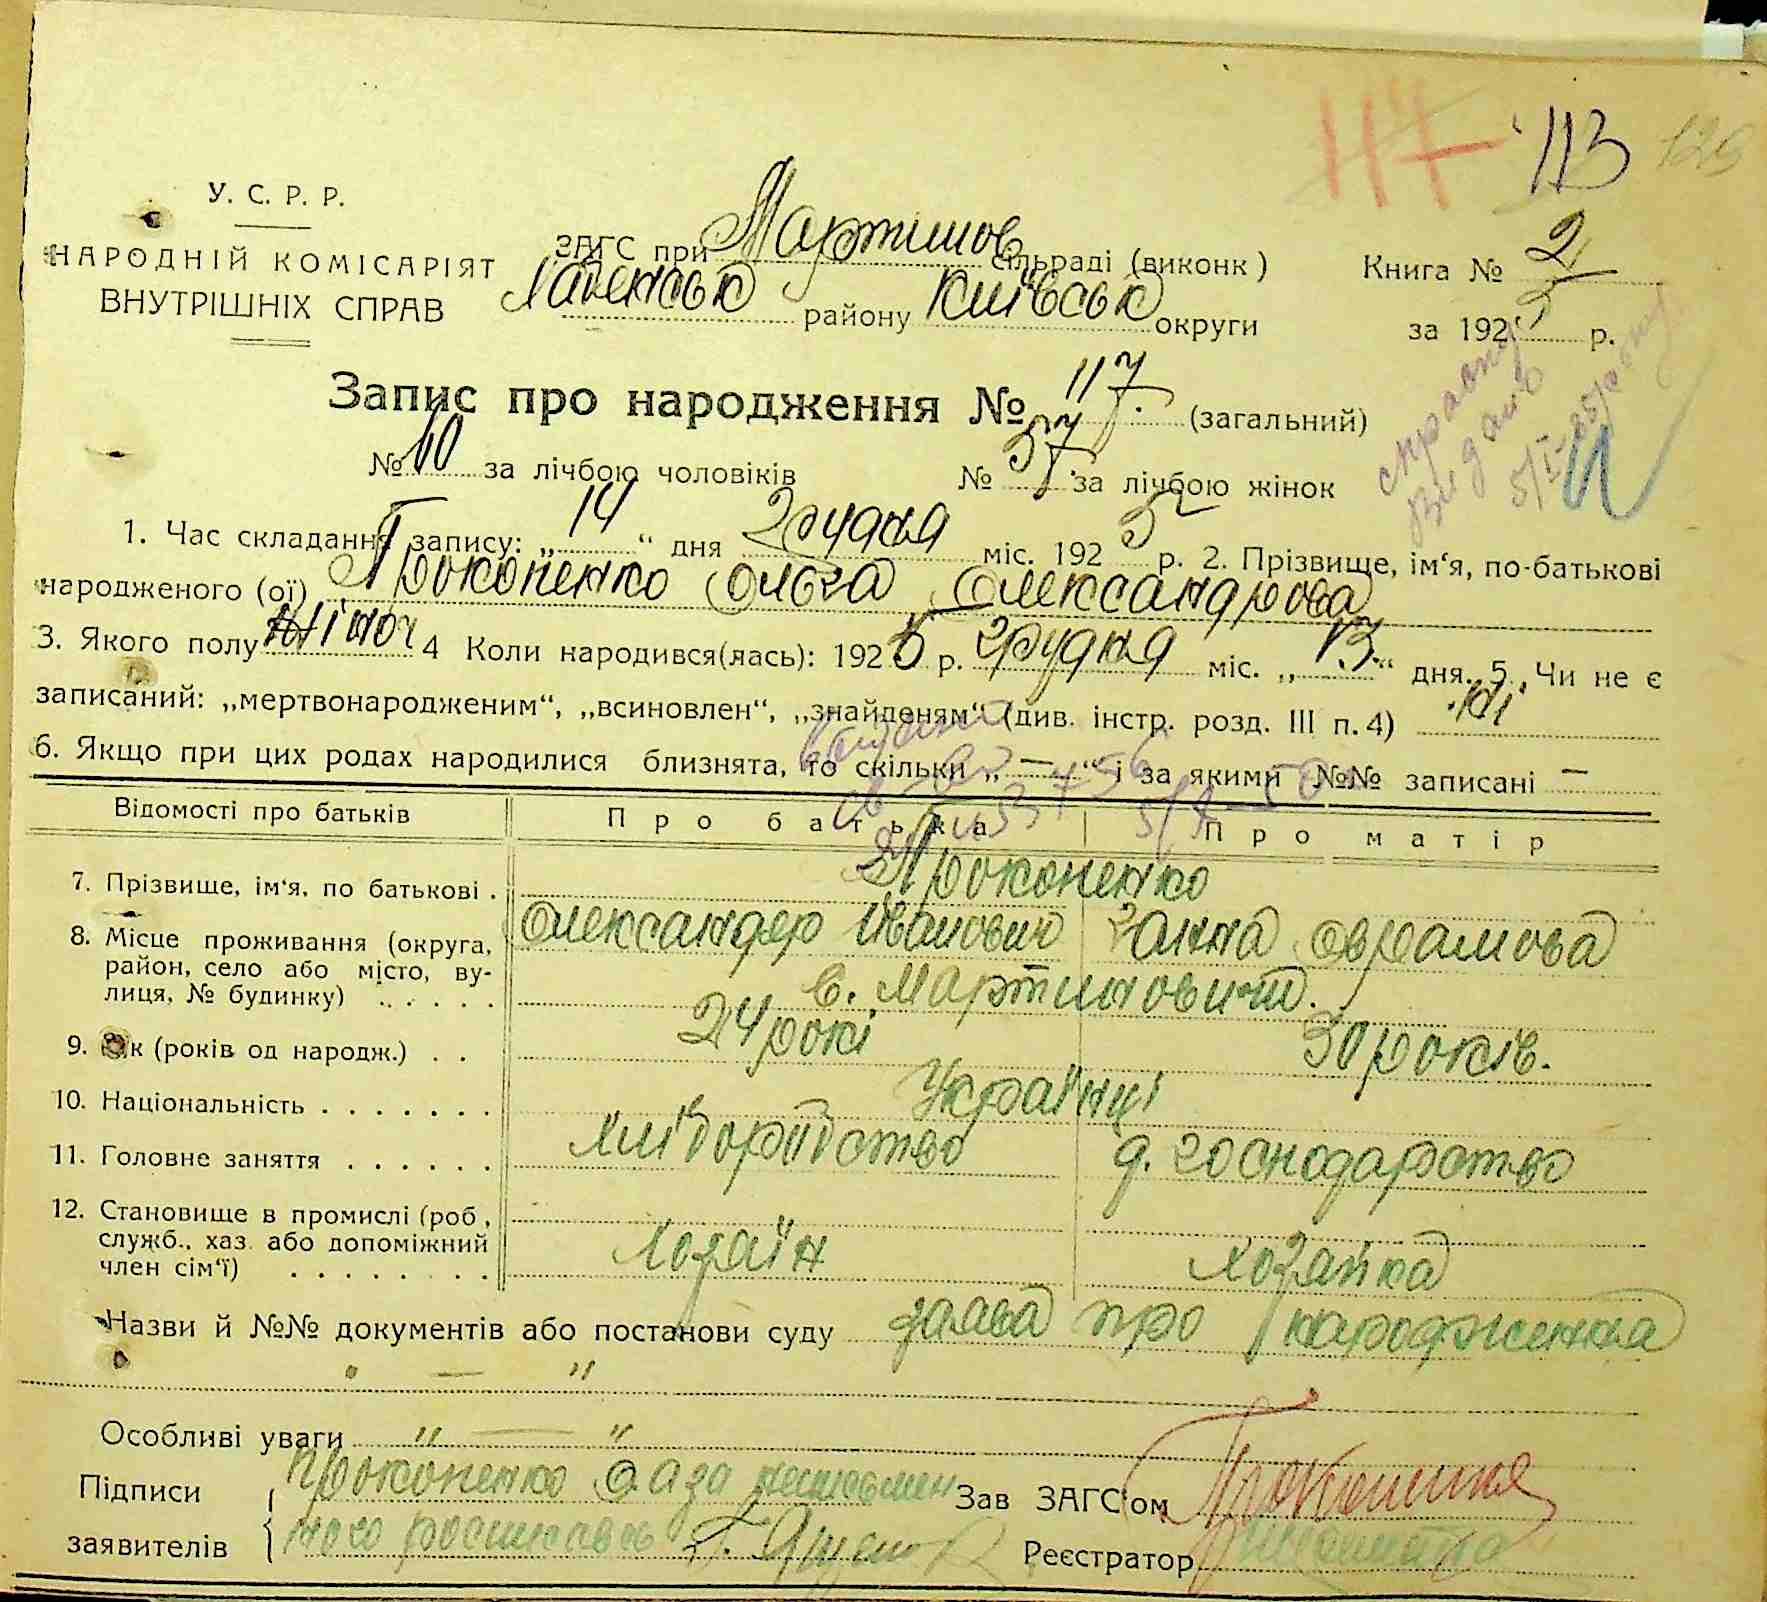 117 113 129
У. С. Р. Р.
НАРОДНІЙ КОМІСАРІЯТ
ВНУТРІШНІХ СПРАВ
ЗАГС при Мартинов сільраді (виконк)
району Київськ округи
Книга № 2
за 1925 р.
справку
видано
Запис про народження № 117 (загальний)
№ 60 за лічбою чоловіків № 57 за лічбою жінок
1. Час складання запису: „14“ дня Грудня міс. 1925 р. 2. Прізвище, ім‘я, по-батькові
народженого (ої) Прокопенко Ольга Олександрова
3. Якого полу жіноч 4 Коли народився(лась): 1925 р. грудня міс. „13.“ дня. 5. Чи не є
записаний: „мертвонародженим“, „всиновлен“, „знайденям“ (див. інстр. розд. III п. 4) ні
6. Якщо при цих родах народилися близнята, то скільки „—“ і за якими №№ записані —
Відомості про батьків Про батька Про матір
7. Прізвище, ім‘я, по батькові . Прокопенко
Олександр Іванович Ганна Оврамова
8. Місце проживання (округа,
район, село або місто, ву-
лиця, № будинку) . . . . . с. Мартиновичі.
9. Вік (років од народж.) . . 24 рокі 30 років.
10. Національність . . . . . . . Українці
11. Головне заняття . . . . . . хліборобство д. господарство
12. Становище в промислі (роб.,
служб., хаз. або допоміжний
член сім‘ї) . . . . . . . . хозяїн хозяйка
Назви й №№ документів або постанови суду заява про народження
" — "
Особливі уваги " — "
Підписи
заявителів
Прокопенко О. а за неписьмен
ного росписавсь Г.
Зав ЗАГС‘ом
Реєстратор